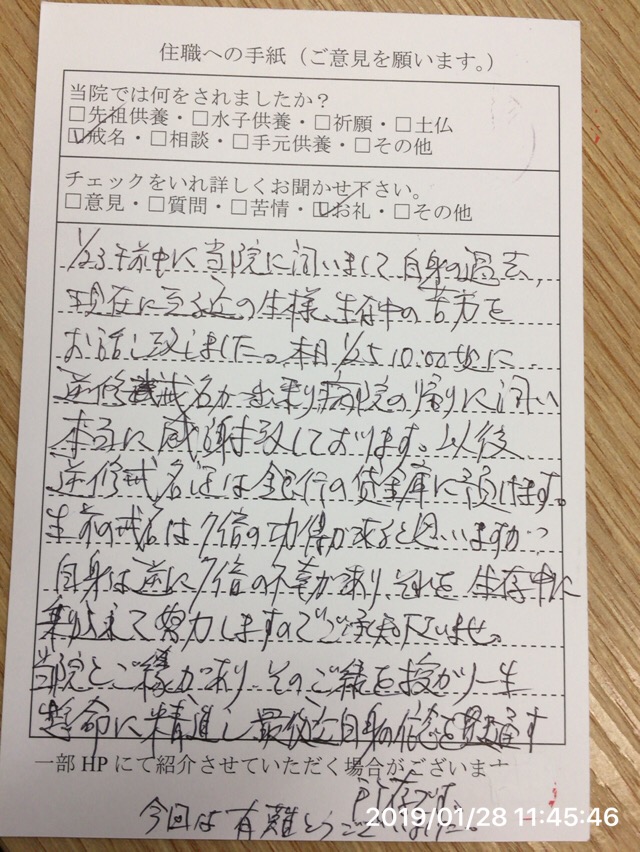 住職への手紙（ご意見を願います。）
当院では何をされましたか？
□先祖供養・□水子供養・□祈願・□土仏
☑戒名・□相談・□手元供養・□その他
チェックをいれ詳しくお聞かせ下さい。
□意見・□質問・□苦情・☑お礼・□その他
1/23午前中に当院に伺いまして自身の過去、
現在に至る迄の生様、生存中の苦労を
お話し致しました。本日1/25 10:00頃に
逆修戒名が出来り病院の帰りに伺い
本当に感謝致しております。以後
逆修戒名は銀行の貸金庫に預けます。
生前の戒名は7倍の功徳が有ると思いますが、
自身は逆に7倍の不幸があり、それを生存中に
乗り越えて努力しますのでご承知下いませ。
当院とご縁があり、そのご縁を授かり一生
懸命に精進し最後迄自身の信念を貫通す
一部HPにて紹介させていただく場合がございます
所存です。
今回は有難とうございました。
2019/01/28 11:45:46